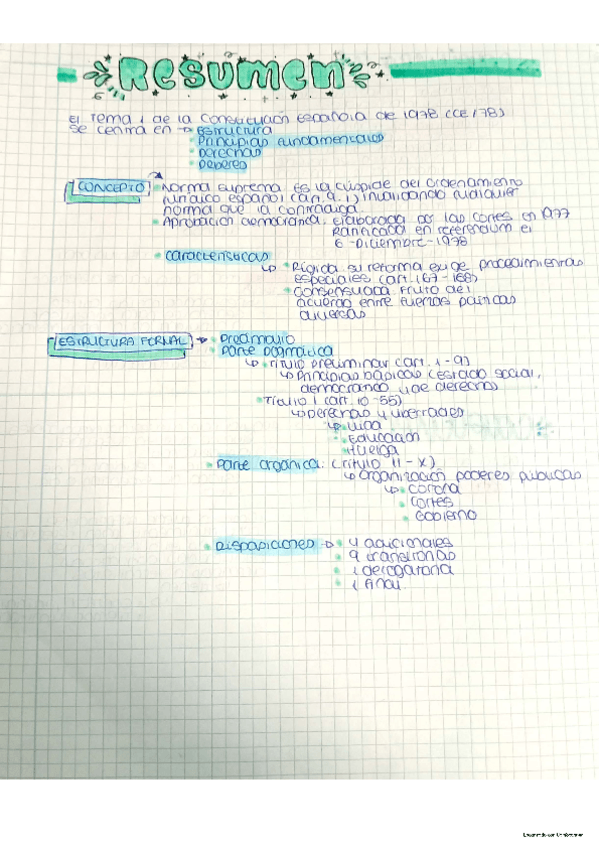 RESUMEN
El Tema 1 de la Constitución Española de 1978 (CE 178)
se centra en → Estructura
Principios fundamentales
Derechos
Deberes
CONCEPTO → Norma suprema Es la cúspide del ordenamiento
jurídico español (art. 9.1) invalidando cualquier
norma que la contradiga.
Aprobación democrática: Elaborada por las Cortes en 1977
Ratificada en referéndum el
6-Diciembre-1978
Características
↳ Rígida su reforma exige procedimientos
especiales (art. 167-168)
Consensuada Fruto del
acuerdo entre fuerzas políticas
diversas
ESTRUCTURA FORMAL → Preámbulo
Parte Dogmática
↳ Título preliminar (art. 1-9)
↳ Principios básicos (estado social,
democrático y de derecho)
Título 1 (art. 10-55)
↳ Derechos y libertades
↳ Vida
Educación
Huelga
Parte orgánica: (título II-X)
↳ Organización poderes públicos
↳ Corona
Cortes
Gobierno
Disposiciones → 4 adicionales
9 transitorias
1 derogatoria
1 final